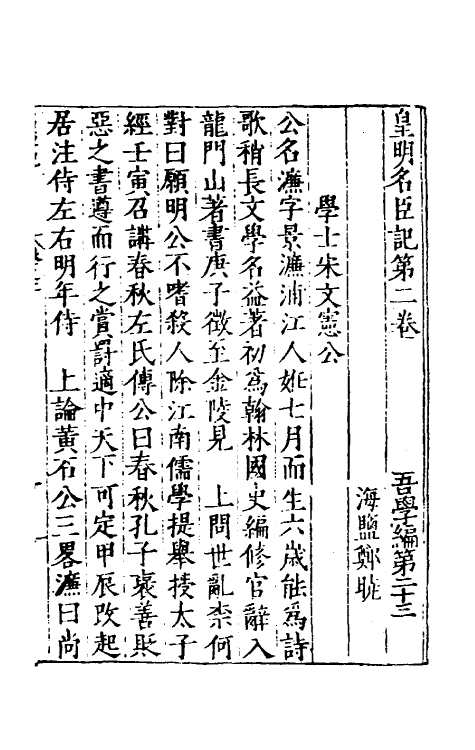 皇明名臣記第二卷　吾學編第二十三
海鹽鄭曉
學士宋文憲公
公名濂字景濂浦江人妊七月而生六歲能爲詩
歌稍長文學名益著初爲翰林國史編修官辭入
龍門山著書庚子徵至金陵見　上問世亂柰何
對曰願明公不嗜殺人除江南儒學提舉授太子
經壬寅召講春秋左氏傳公曰春秋孔子褒善貶
惡之書遵而行之賞罰適中天下可定甲辰改起
居注侍左右明年侍　上論黃石公三畧濂曰尚